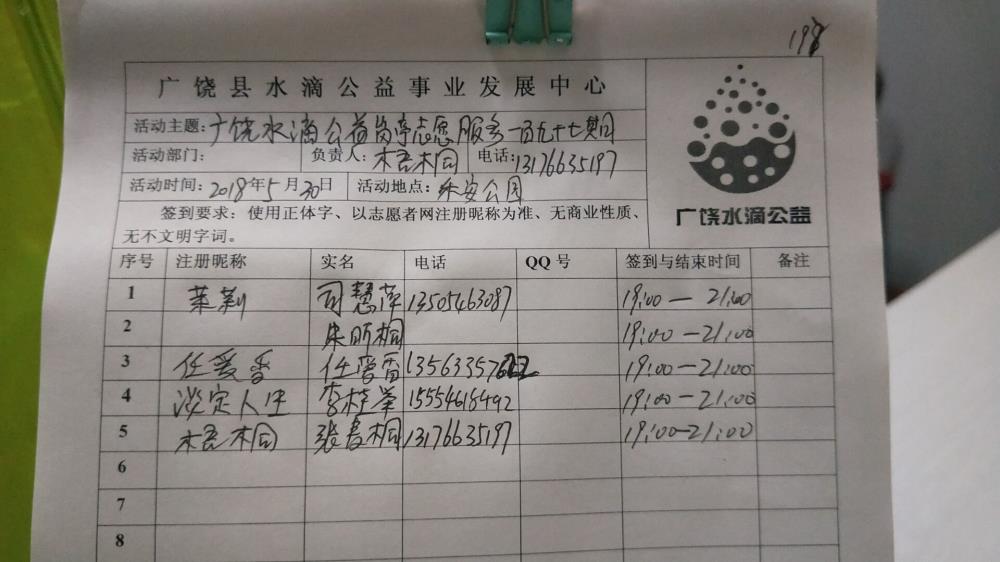 198
广饶县水滴公益事业发展中心
活动主题:广饶水滴公益岗亭志愿服务一百九十七期
活动部门: 负责人:梧桐 电话:13176635197
活动时间:2018年5月30日 活动地点:乐安公园
广饶水滴公益
签到要求:使用正体字、以志愿者网注册昵称为准、无商业性质、
无不文明字词。
序号 注册昵称 实名 电话 QQ号 签到与结束时间 备注
1 茉莉 司慧萍 13505463087 19:00—21:00
2 朱昕桐 19:00—21:00
3 任爱香 任爱香 19:00—21:00
4 淡定人生 李桂 15554615492 19:00—21:00
5 梧桐 张春桐 13176635197 19:00—21:00
6
7
8